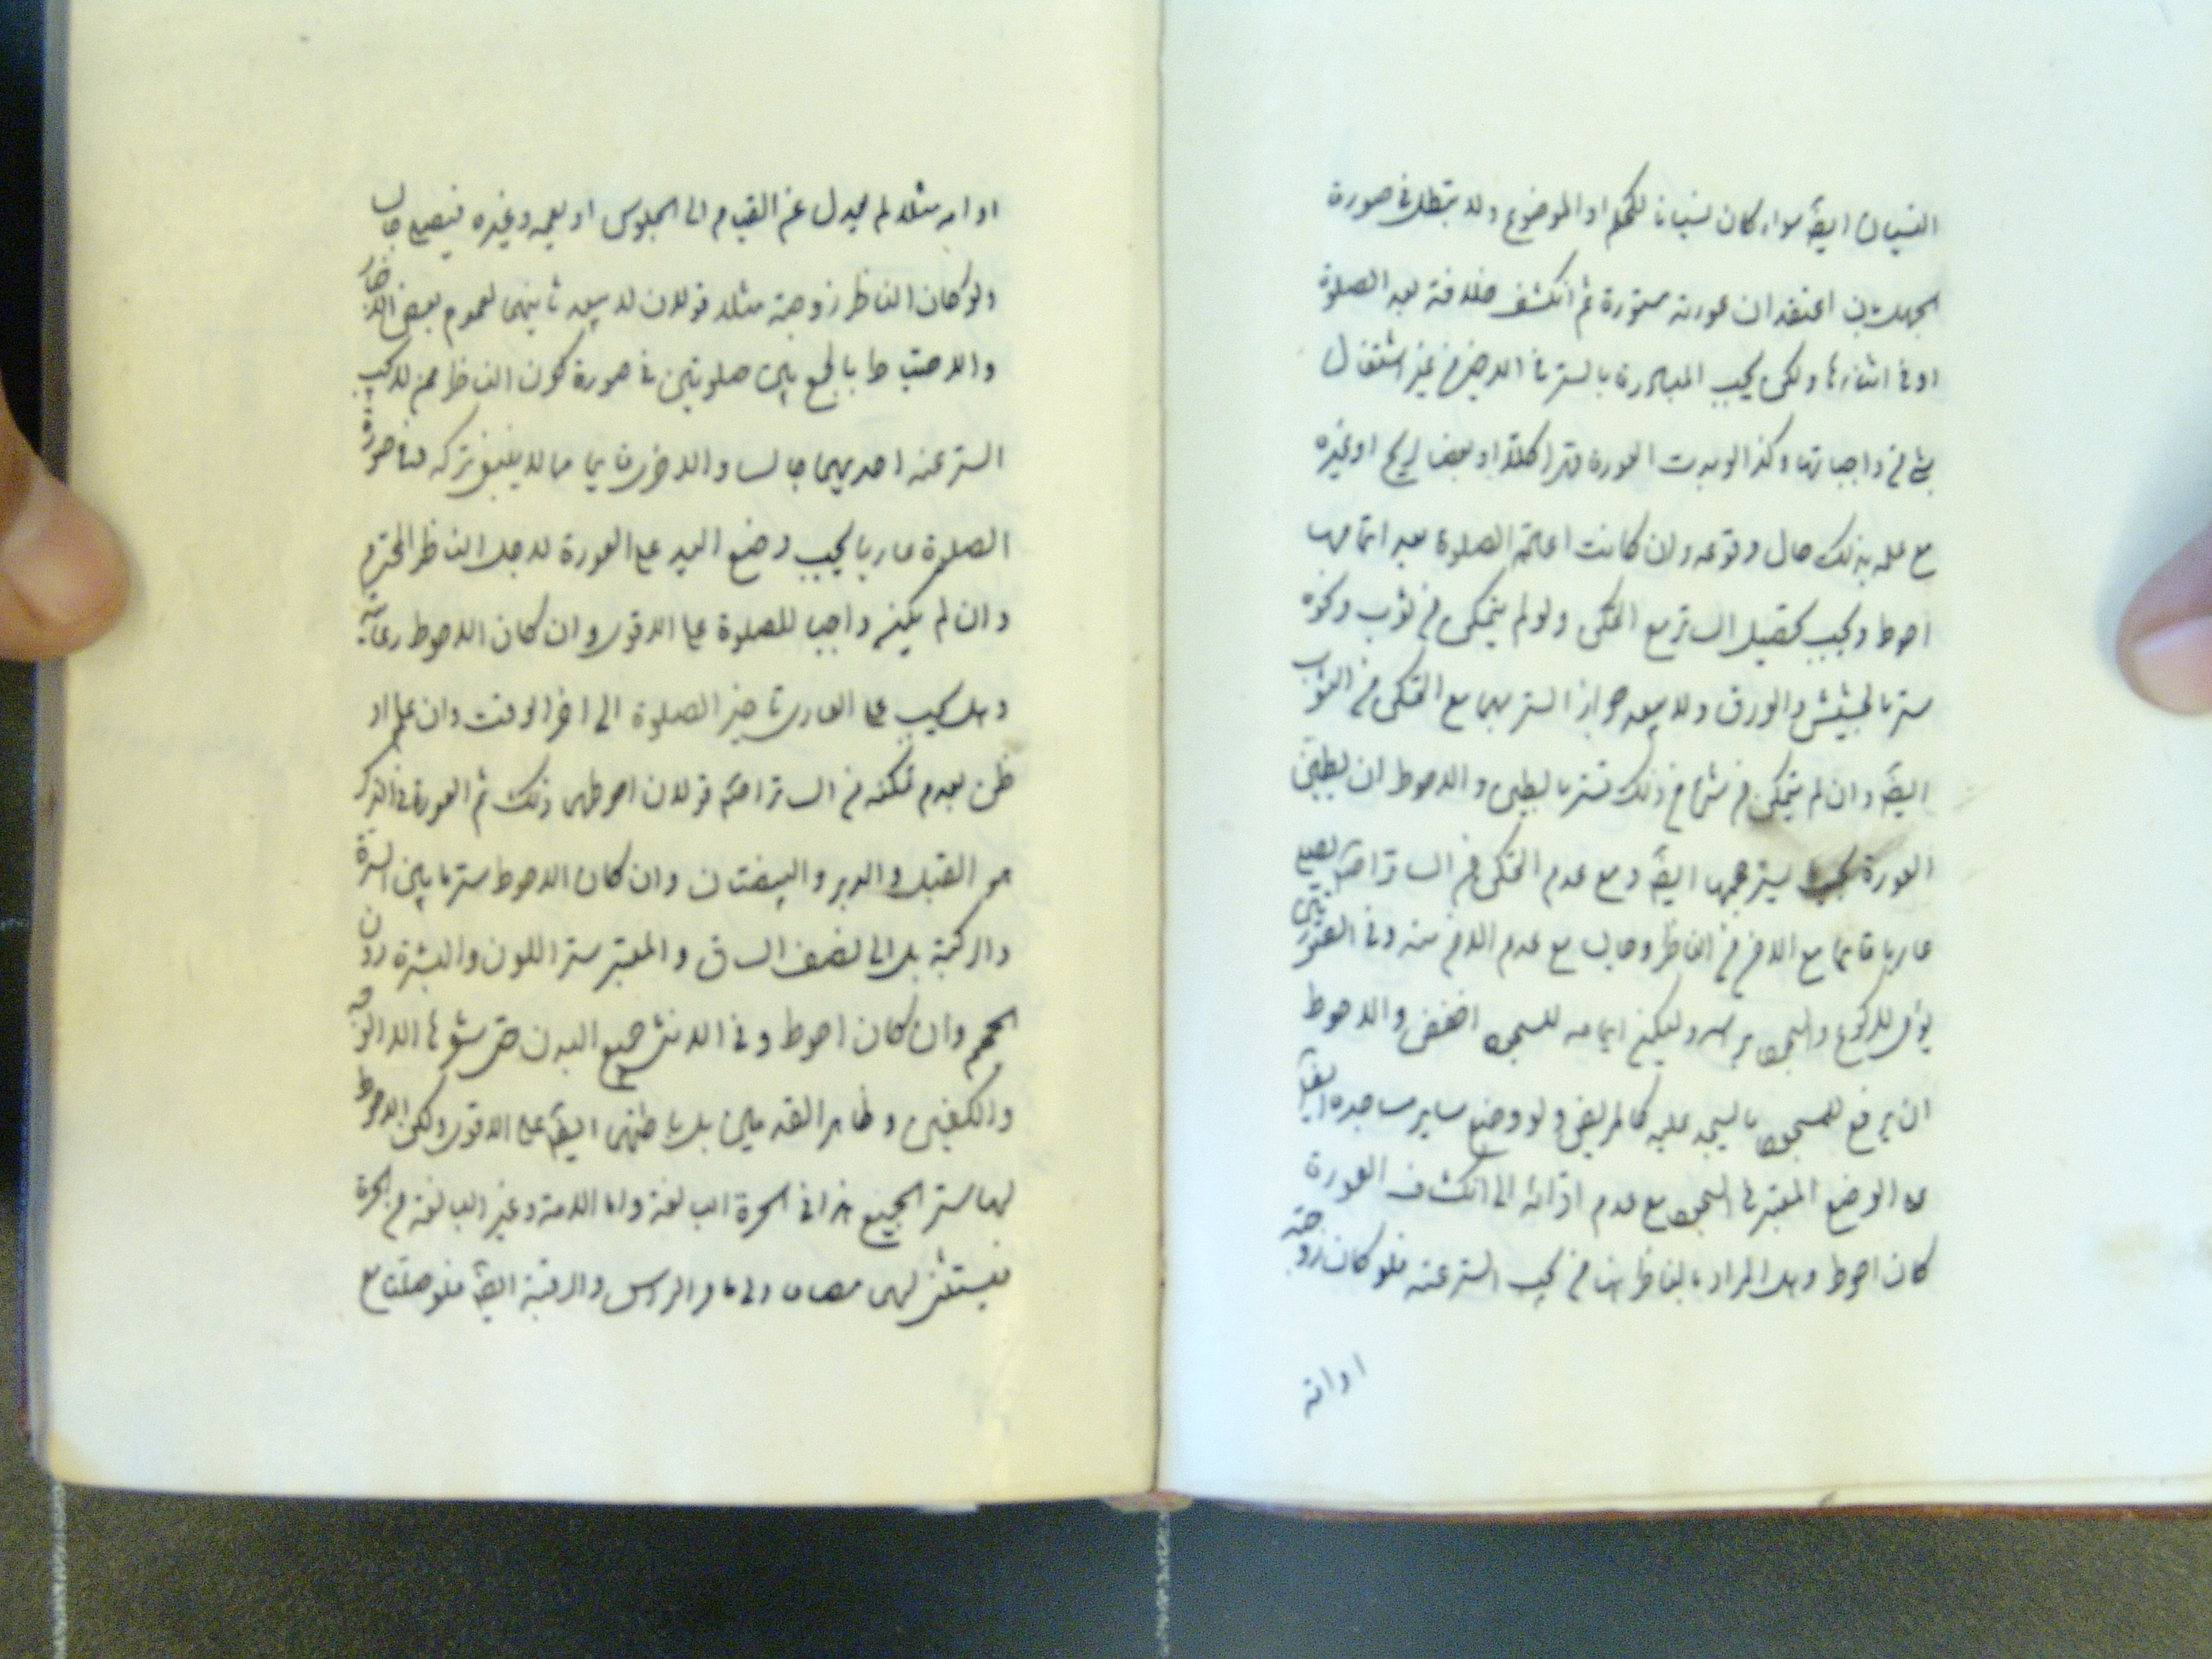 النسيان ايضا سواء كان نسيانا للحكم او الموضوع ولا تبطل في صورة
الجهل بان اعتقد ان عورته مستورة ثم انكشف خلافه بعد الصلوة
او في اثنائها ولكن يجب المبادرة بالستر في الاخير من غير اشتغال
بشئ من واجباتها وكذا لو بدت العورة قهرا كلا او بعضا لريح او غيره
مع علمه بذلك حال وقوعه وان كانت اعادة الصلوة بعد اتمامها
احوط ويجب تحصيل الساتر مع التمكن ولو لم يتمكن من ثوب ونحوه
ستر بالحشيش والورق ولا يبعد جواز الستر بهما مع التمكن من الثوب
ايضا وان لم يتمكن من شئ من ذلك فستر بالطين والاحوط ان يطين
العورة بحيث يستر حجمها ايضا ومع عدم التمكن من الساتر اصلا يصلي
عاريا قائما مع الامن من الناظر وجالسا مع عدم الامن منه وفي الصورتين
يؤمي للركوع والسجود براسه وليكن ايمائه للسجود اخفض والاحوط
ان يرفع للسجود ما يسجد عليه كالمريض ولو وضع ساير مساجده ايضا
على الوضع المعتبر في السجود مع عدم ادائه الى انكشاف العورة
كان احوط وهل المراد بالناظر هنا من يجب الستر عنه فلو كان زوجته
او امته
او امته مثلا لم يعدل عن القيام الى الجلوس او يعمه وغيره فيصلي جالسا
ولو كان الناظر زوجته مثلا قولان لا يبعد ثانيهما لعموم بعض الاخبار
والاحتياط بالجمع بين صلوتين في صورة كون الناظر ممن لا يجب
الستر عنه احديهما جالسا والاخرى قايما مما لا ينبغي تركه وفي صورة
الصلوة عاريا يجب وضع اليد على العورة لاجل الناظر المحترم
وان لم يكن واجبا للصلوة على الاقوى وان كان الاحوط رعايته
وهل يجب على العاري تاخير الصلوة الى اخر الوقت وان علم او
ظن بعدم تمكنه من الساتر ام لا قولان احوطهما ذلك ثم العورة في الذكر
هو القبل والدبر والبيضتان وان كان الاحوط ستر ما بين السرة
والركبة بل الى نصف الساق والمعتبر ستر اللون والبشرة دون
الحجم وان كان احوط وفي الانثى جميع البدن حتى شعرها الا الوجه
والكفين وظاهر القدمين بل باطنهما ايضا على الاقوى ولكن الاحوط
لها ستر الجميع هذا في الحرة البالغة واما الامة وغير البالغة من الحرة
فيستثنى لهما مضافا الى ما مر الراس والرقبة ايضا فلو صلتا مع